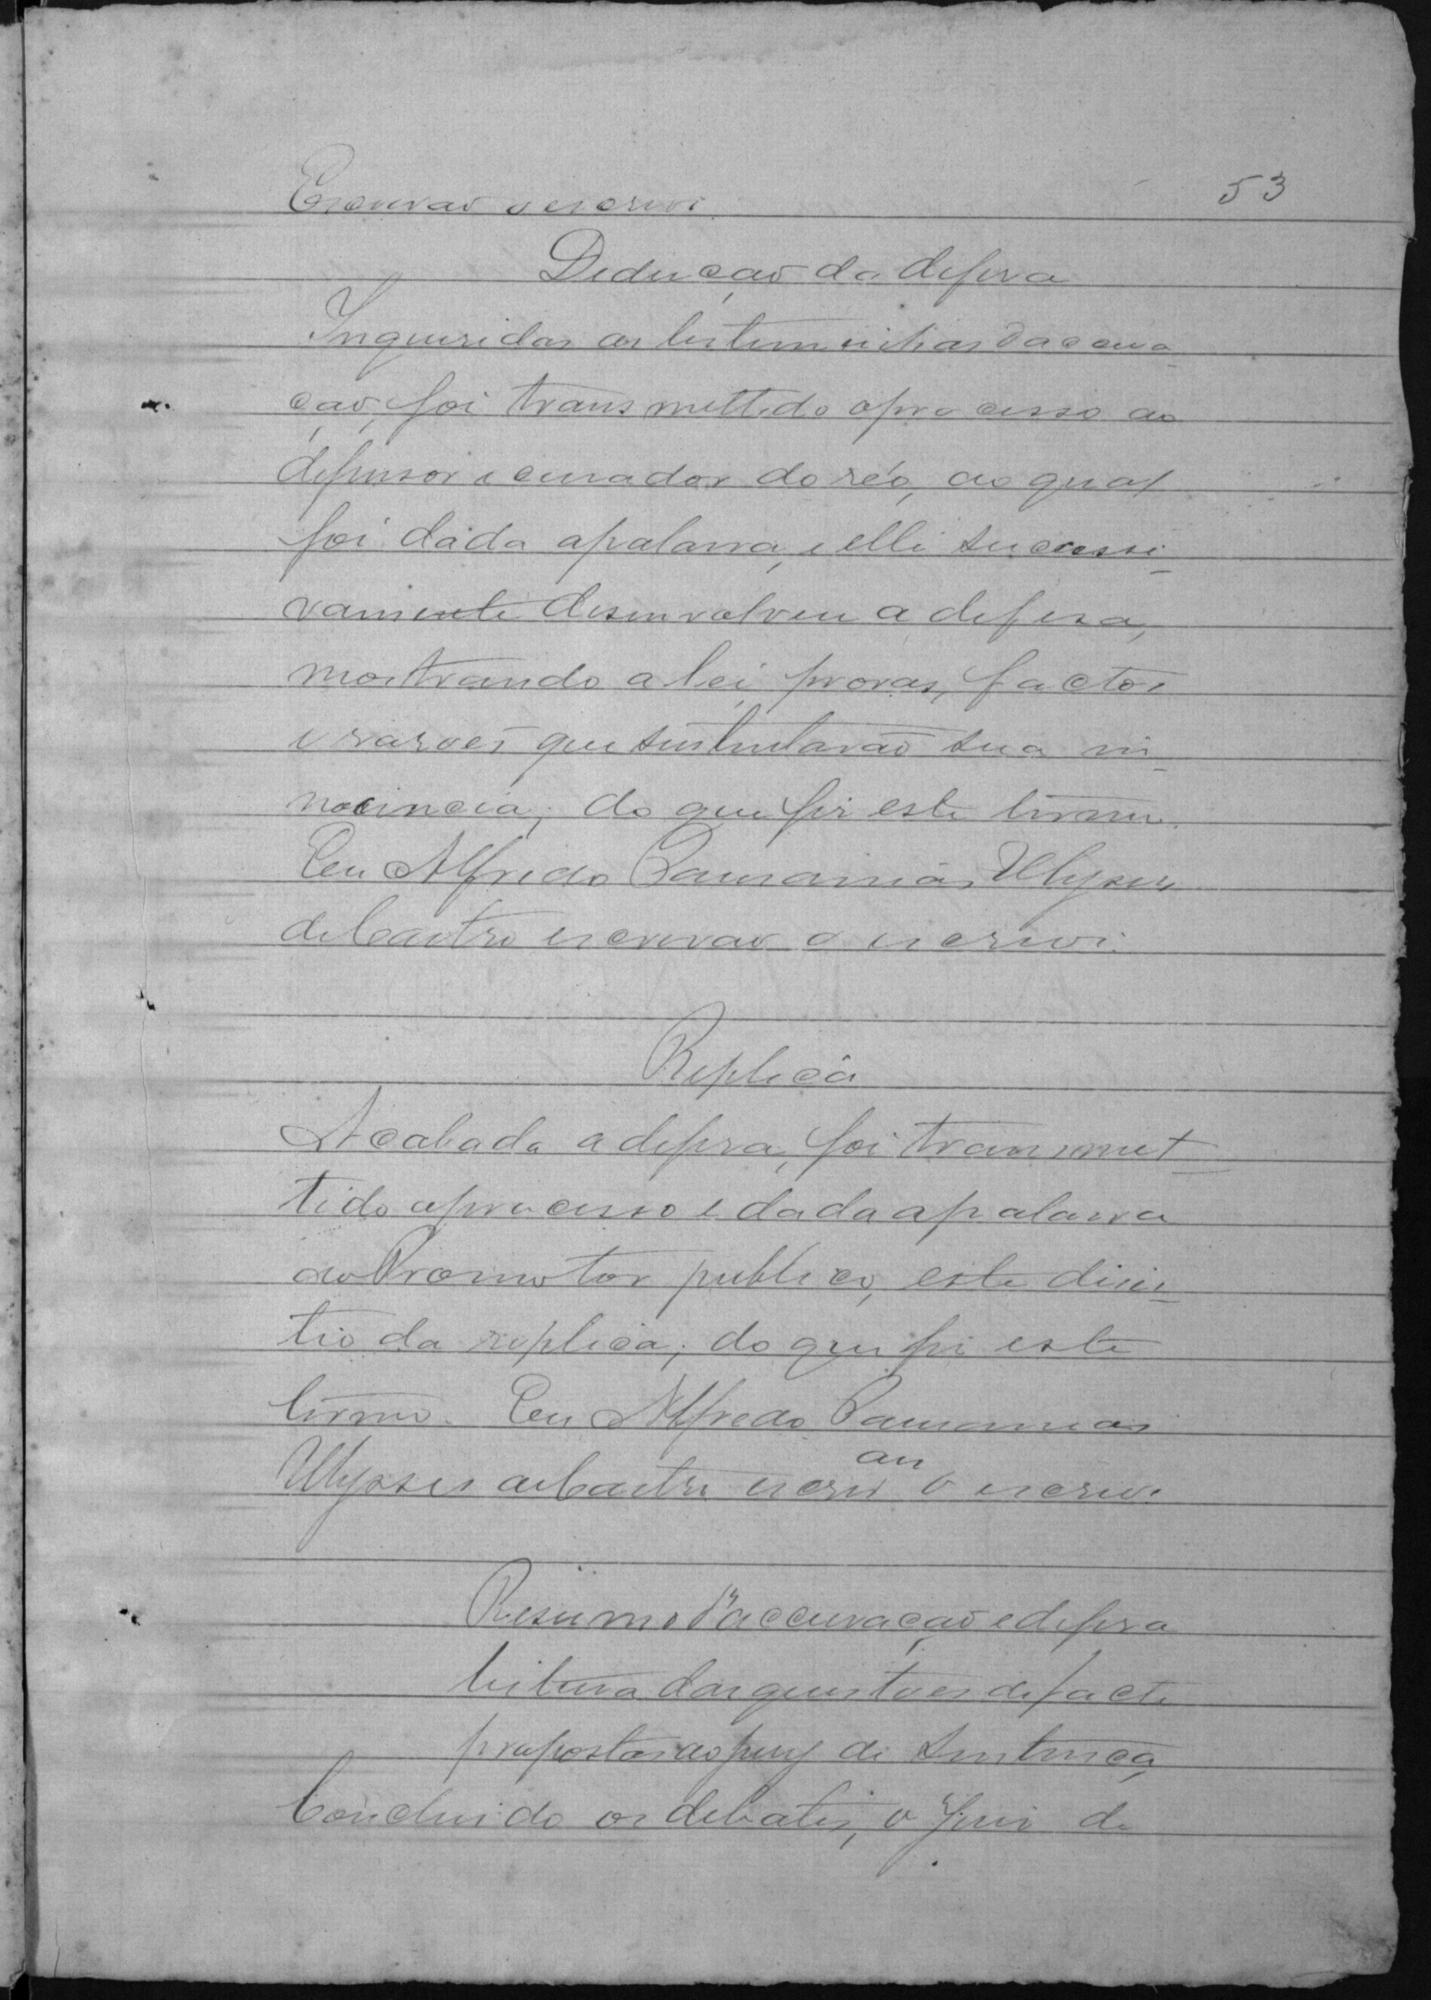 Escrivão o escrevi. 53
Deducção da defesa
Inqueridas as testemunhas da accusa-
ção, foi transmettido o processo ao
defensor e curador do réo, ao qual
foi dada a palavra, e elle successi-
vamente desenvolveu a defesa,
mostrando a lei, provas, factos
e rasões que sustentavão sua in-
nocencia; do que fiz este termo.
Eu Alfredo Ulysses
de Castro escrivão o escrevi.
Replica
Acabada a defesa, foi transmet-
tido o processo e dada a palavra
ao Promotor publico, este disis-
tio da replica; do que fiz este
termo. Eu Alfredo
Ulysses de Castro escrivão o escrevi
Resumo d'accusação e defesa
leitura das questões de facto
propostas ao jury de sentença
Concluido os debates, o Juiz de